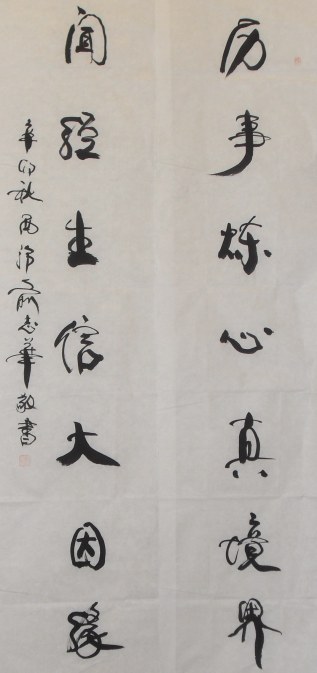 历事炼心真境界
闻经生信大因缘
辛卯秋西泠俞志华敬书